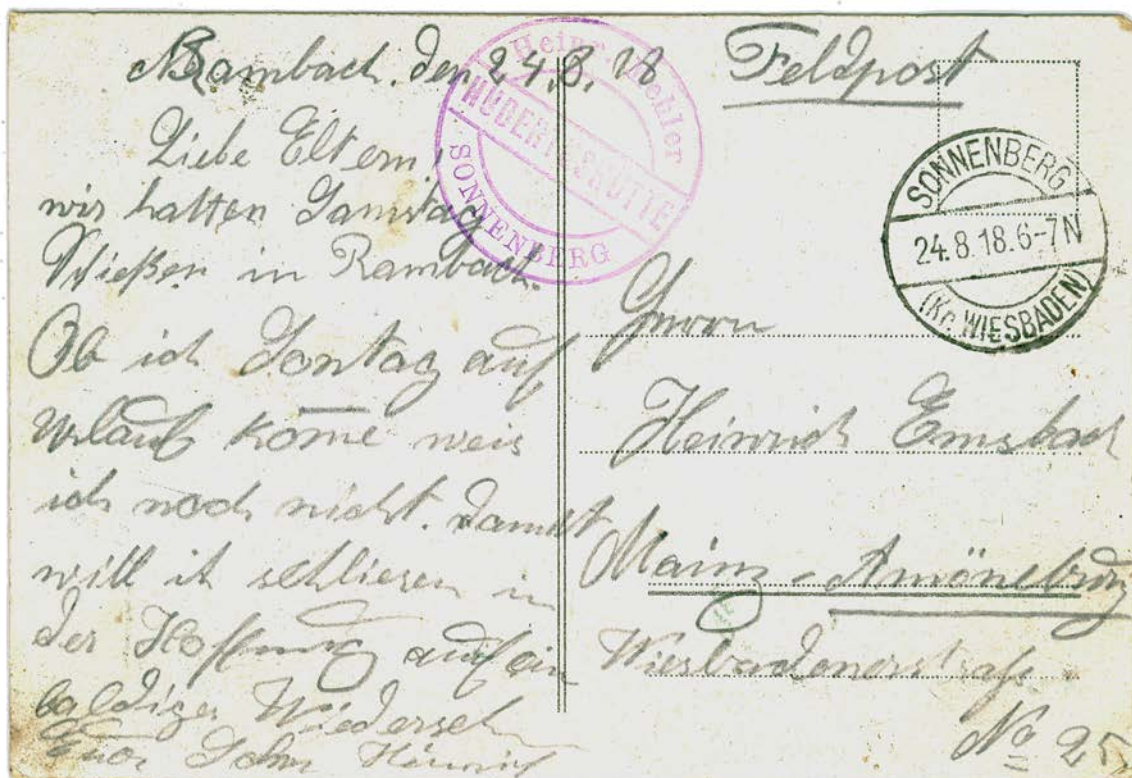 Rambach. den 24.8.18
Liebe Eltern,
wir hatten Samstag
Schießen in Rambach.
Ob ich Sontag auf
Urlaub kom̄e weis
ich noch nicht. Damit
will ich schliesen in
der Hoffnung auf ein
baldiges Wiedersehn
Euer Sohn Heinrich
Heinr. Köhler
HUBERTUSHÜTTE
SONNENBERG
Feldpost
SONNENBERG
24.8.18.6-7N
(Kr. WIESBADEN)
Herrn
Heinrich Emsbach
Mainz-Amöneburg
Wiesbadenerstraße
No 25